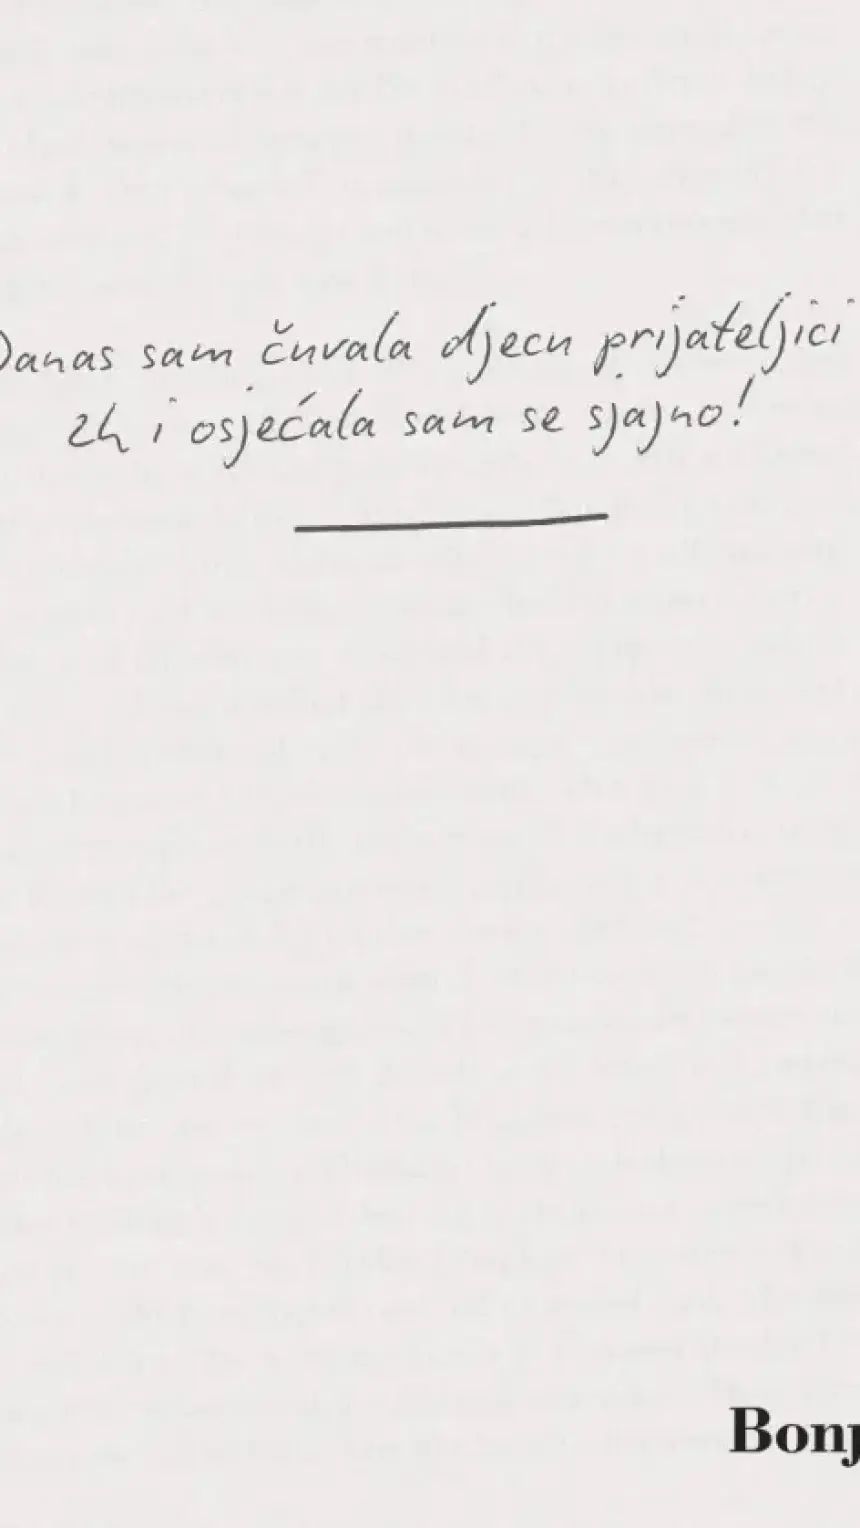 Danas sam čuvala djecu prijateljici
2h i osjećala sam se sjajno!
Bonj